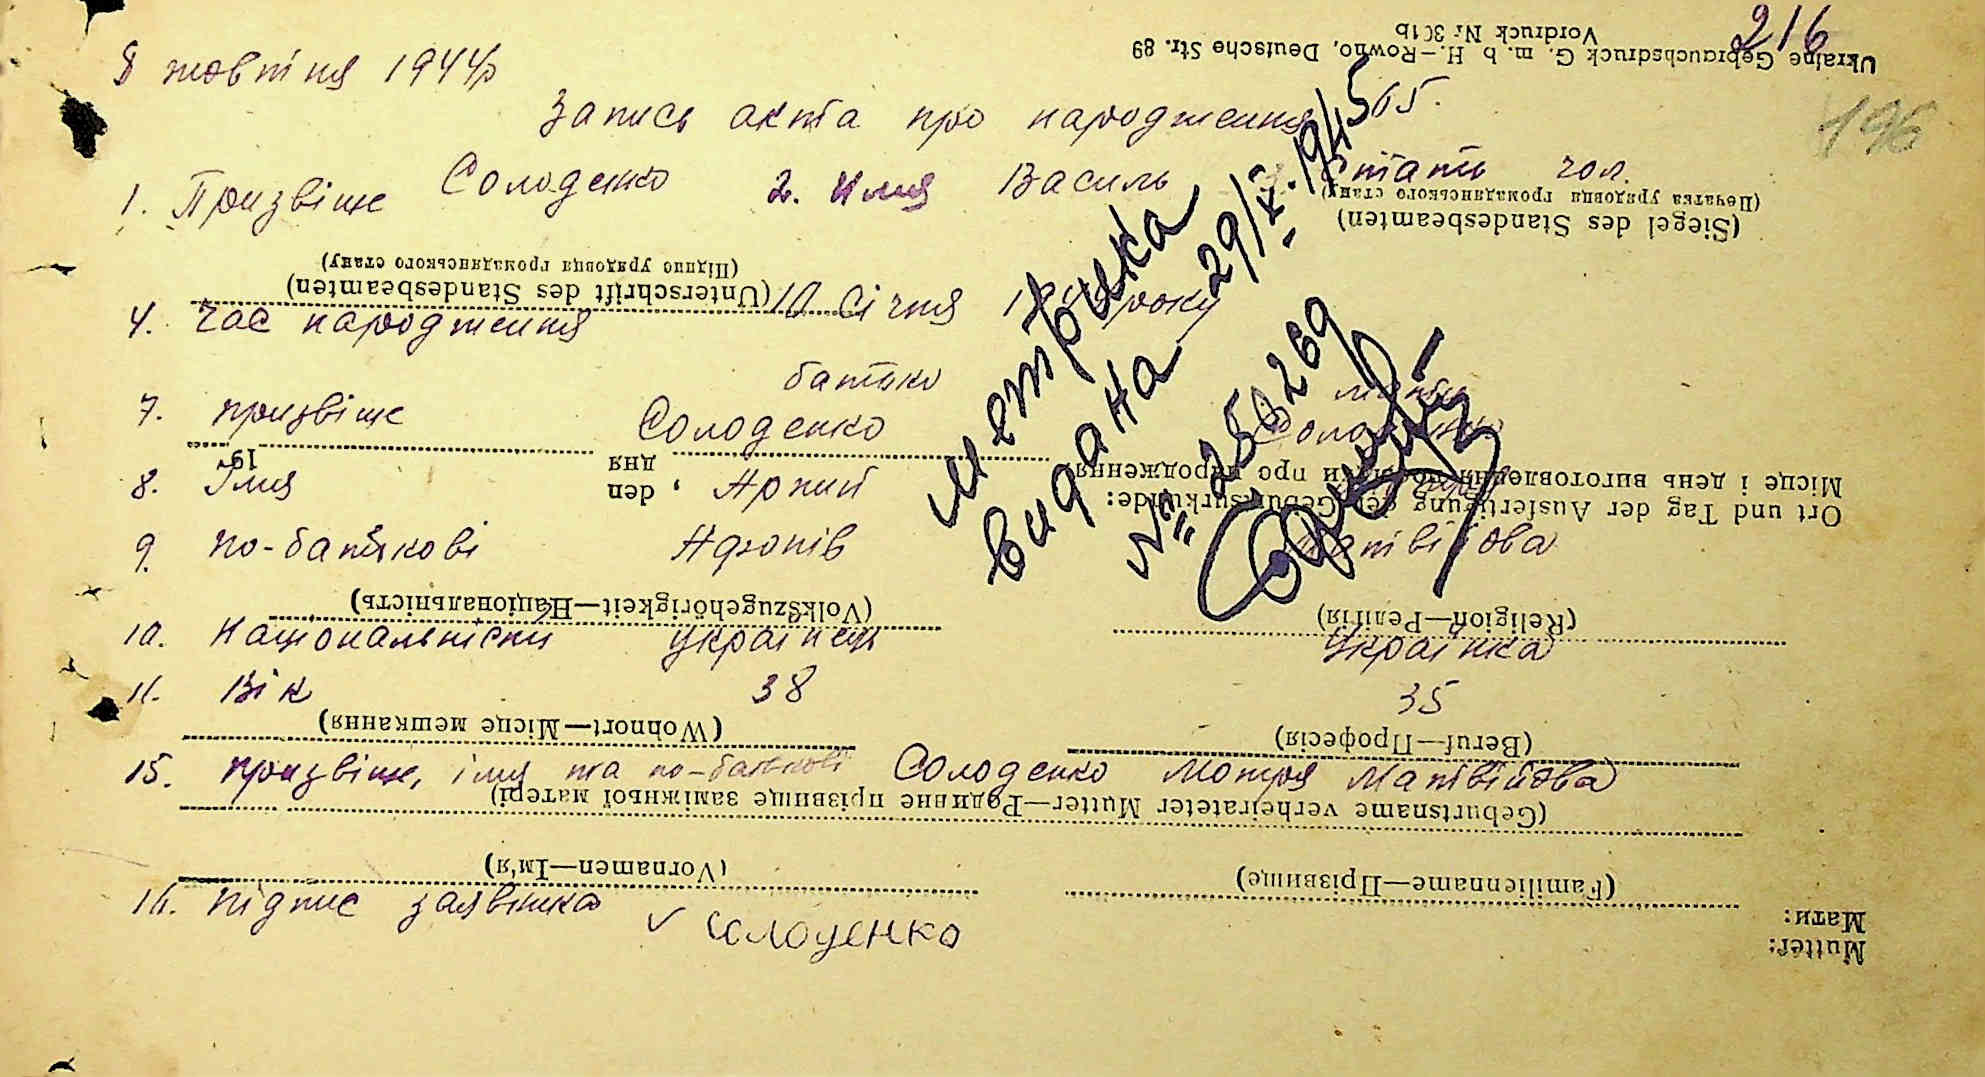 216
196
8 жовтня 1944р
Запись акта про народження 65.
1. Призвіще Солоденко 2. Имя Василь 3 стать чол.
4. Час народження 10 січня року
батько мати
7. призвіще Солоденко Солоденко
8. Імя
9. по-батькові Матвійова
10. Національність українец українка
11. Вік 38 35
15. призвіще, імя та по-батькові Солоденко Мотря Матвійова
16. підпис заявника ѵ Солоденко
Метрика
видана 29/X.1945
№
Mutter:
Мати:
(Familienname—Прізвище) (Vornamen—Ім'я)
(Geburtsname verheirateter Mutter—Родинне прізвище заміжньої матері)
(Beruf—Професія) (Wohnort—Місце мешкання)
(Religion—Релігія) (Volkszugehörigkeit—Національність)
Ort und Tag der Ausfertigung der Geburtsurkunde: , den 19
Місце і день виготовлення посвідки про народження дня
(Unterschrift des Standesbeamten)
(Підпис урядовця громадянського стану)
(Siegel des Standesbeamten)
(Печатка урядовця громадянського стану)
Ukraine Gebrauchsdruck G. m. b. H.—Rowno, Deutsche Str. 89
Vordruck Nr 301b